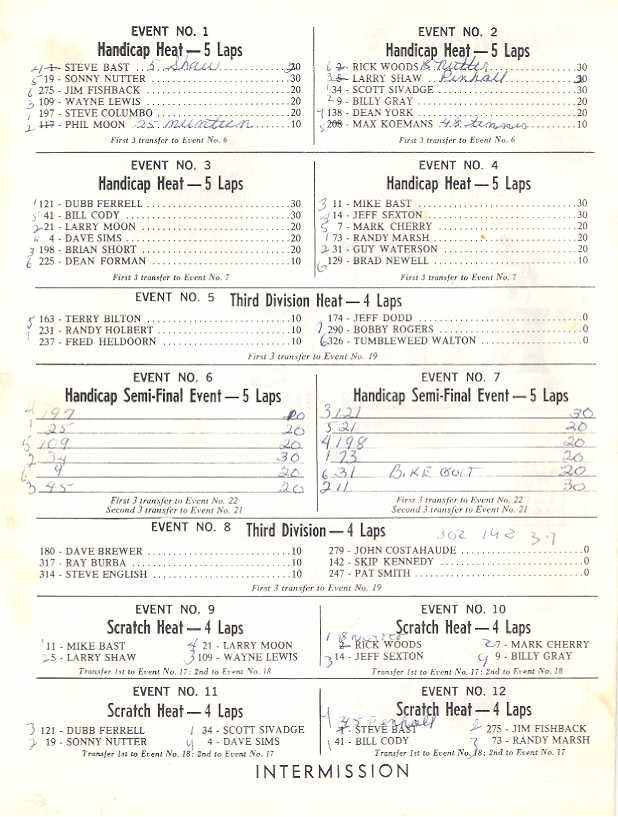 EVENT NO. 1
Handicap Heat — 5 Laps
4 1 - STEVE BAST 5 Shaw 20
5 19 - SONNY NUTTER 20
6 275 - JIM FISHBACK 20
3 109 - WAYNE LEWIS 20
1 197 - STEVE COLUMBO 20
2 117 - PHIL MOON 25 10
First 3 transfer to Event No. 6
EVENT NO. 2
Handicap Heat — 5 Laps
6 2 - RICK WOODS 30
3 5 - LARRY SHAW Penhall 30
1 34 - SCOTT SIVADGE 30
2 9 - BILLY GRAY 20
4 138 - DEAN YORK 20
5 208 - MAX KOEMANS 10
First 3 transfer to Event No. 6
EVENT NO. 3
Handicap Heat — 5 Laps
1 121 - DUBB FERRELL 30
5 41 - BILL CODY 30
2 21 - LARRY MOON 20
4 - DAVE SIMS 20
3 198 - BRIAN SHORT 20
6 225 - DEAN FORMAN 10
First 3 transfer to Event No. 7
EVENT NO. 4
Handicap Heat — 5 Laps
3 11 - MIKE BAST 30
4 14 - JEFF SEXTON 30
5 7 - MARK CHERRY 20
1 73 - RANDY MARSH 20
2 31 - GUY WATERSON 20
6 129 - BRAD NEWELL 10
First 3 transfer to Event No. 7
EVENT NO. 5 Third Division Heat — 4 Laps
163 - TERRY BILTON 10
231 - RANDY HOLBERT 10
237 - FRED HELDOORN 10
174 - JEFF DODD 0
290 - BOBBY ROGERS 0
6 326 - TUMBLEWEED WALTON 0
First 3 transfer to Event No. 19
EVENT NO. 6
Handicap Semi-Final Event — 5 Laps
4 197
1 25 20
5 109 20
2 34 30
6 9 20
3 45 20
First 3 transfer to Event No. 22
Second 3 transfer to Event No. 21
EVENT NO. 7
Handicap Semi-Final Event — 5 Laps
3 121 30
5 21 20
4 198 20
1 73 20
6 31 BIKE BOLT 20
2 11 30
First 3 transfer to Event No. 22
Second 3 transfer to Event No. 21
EVENT NO. 8 Third Division — 4 Laps
302 142
180 - DAVE BREWER 10
317 - RAY BURBA 10
314 - STEVE ENGLISH 10
279 - JOHN COSTAHAUDE 0
142 - SKIP KENNEDY 0
247 - PAT SMITH 0
First 3 transfer to Event No. 19
EVENT NO. 9
Scratch Heat — 4 Laps
1 11 - MIKE BAST 4 21 - LARRY MOON
2 5 - LARRY SHAW 3 109 - WAYNE LEWIS
Transfer 1st to Event No. 17: 2nd to Event No. 18
EVENT NO. 10
Scratch Heat — 4 Laps
1 2 - RICK WOODS 2 7 - MARK CHERRY
3 14 - JEFF SEXTON 4 9 - BILLY GRAY
Transfer 1st to Event No. 17; 2nd to Event No. 18
EVENT NO. 11
Scratch Heat — 4 Laps
3 121 - DUBB FERRELL 1 34 - SCOTT SIVADGE
2 19 - SONNY NUTTER 4 4 - DAVE SIMS
Transfer 1st to Event No. 18; 2nd to Event No. 17
EVENT NO. 12
Scratch Heat — 4 Laps
4 45 Penhall
1 - STEVE BAST 2 275 - JIM FISHBACK
1 41 - BILL CODY 3 73 - RANDY MARSH
Transfer 1st to Event No. 18; 2nd to Event No. 17
INTERMISSION